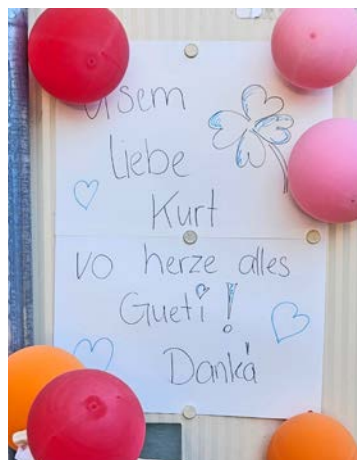 Üsem
liebe
Kurt
vo herze alles
Gueti!
Dankä